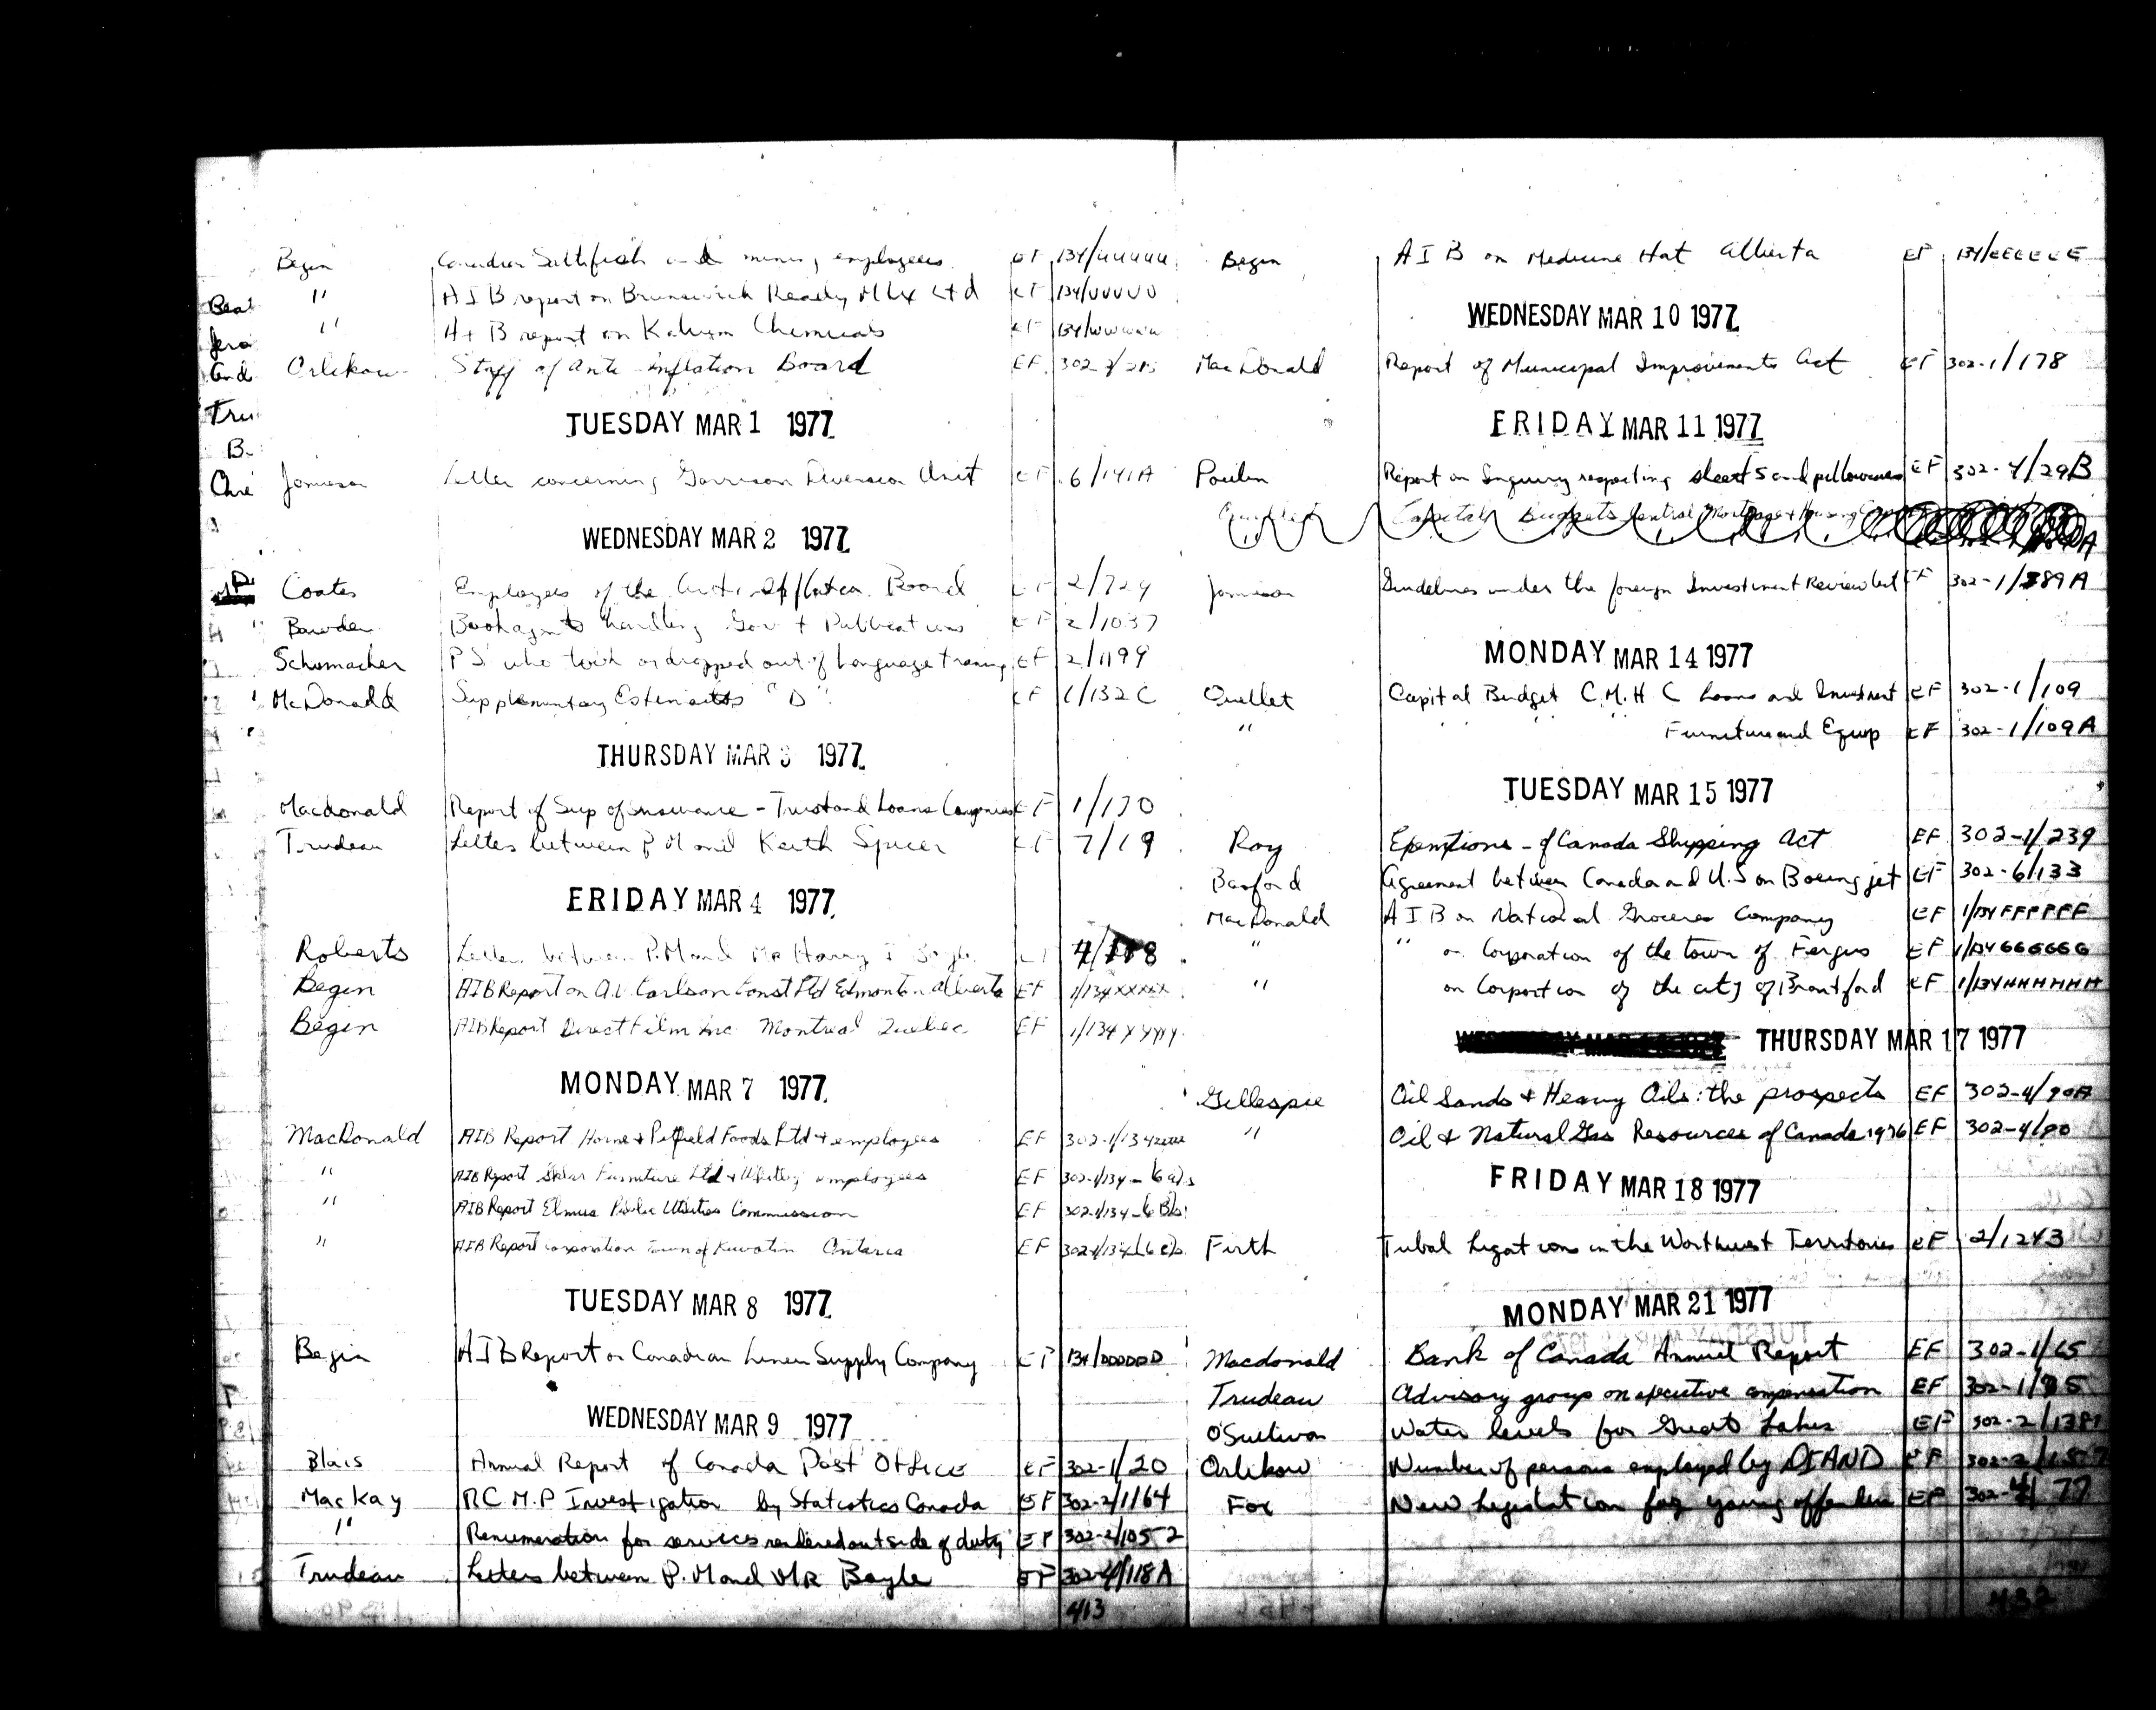 Begin Canadian Saltfish and mining employees EF 134/UUUUU
" AIB report on Brunswick Ready Mix Ltd EF 134/VVVVV
" AIB report on Chemicals EF 134/WWWWW
Orlikow Staff of Anti-Inflation Board EF 302-2/
TUESDAY MAR 1 1977
Jamieson Letter concerning Garrison Diversion Unit EF 6/141A
WEDNESDAY MAR 2 1977
Coates Employees of the Anti-Inflation Board EF 2/724
Book agents handling Gov't Publications EF 2/1037
Schumacher P.S. who took or dropped out of Language training EF 2/1199
McDonald Supplementary Estimates "D" EF 1/132C
THURSDAY MAR 3 1977
Macdonald Report of Sup of insurance - Trust and Loans Companies EF 1/170
Trudeau Letters between P.M and Keith Spicer EF 7/19
FRIDAY MAR 4 1977
Roberts Letters between P.M and Mr Harry J Boyle 4/118
Begin AIB Report on A.V. Carlson Const Ltd Edmonton Alberta EF 1/134XXXXX
Begin AIB Report Direct Film Inc Montreal Quebec EF 1/134YYYYY
MONDAY MAR 7 1977
MacDonald AIB Report Horne & Pitfield Foods Ltd & employees EF 302-1/134ZZZZZ
" AIB Report Sklar Furniture Ltd & Whitby employees EF 302-1/134-6 a)s
" AIB Report Elmira Public Utilities Commission EF 302-1/134-6 B)s
" AIB Report corporation Town of Kewatin Ontario EF 302-1/134
TUESDAY MAR 8 1977
Begin AIB Report on Canadian Linen Supply Company EF 134/DDDDDD
WEDNESDAY MAR 9 1977
Blais Annual Report of Canada Post Office EF 302-1/20
MacKay RCMP Investigation by Statistics Canada EF 302-2/1164
" Renumeration for services rendered outside of duty EF 302-2/1052
Trudeau Letters between P.M and Mr Boyle EF 302-4/118A
413
Begin AIB on Medicine Hat Alberta EF 134/EEEEEE
WEDNESDAY MAR 10 1977
MacDonald Report of Municipal Improvements Act EF 302-1/178
FRIDAY MAR 11 1977
Poulin Report on Inquiry respecting sheets and pillowcases EF 302-4/29B
Jamieson Guidelines under the foreign Investment Review Act EF 302-1/389A
MONDAY MAR 14 1977
Ouellet Capital Budget C.M.H.C Loans and Investment EF 302-1/109
" " " " Furniture and Equip EF 302-1/109A
TUESDAY MAR 15 1977
Roy Exemptions - of Canada Shipping Act EF 302-1/239
Basford Agreement between Canada and U.S on Boeing jet EF 302-6/133
MacDonald AIB on National Groceres Company EF 1/134FFFFFF
" " on Corporation of the town of Fergus EF 1/134GGGGGG
" on Corporation of the city of Brantford EF 1/134HHHHHH
THURSDAY MAR 17 1977
Gillespie Oil Sands & Heavy Oils: the prospects EF 302-4/90A
" Oil & Natural Gas Resources of Canada 1976 EF 302-4/90
FRIDAY MAR 18 1977
Firth Tubal Ligations in the Northwest Territories EF 2/1243
MONDAY MAR 21 1977
Macdonald Bank of Canada Annual Report EF 302-1/65
Trudeau Advisory group on executive compensation EF
O'Sullivan Water levels for Great Lakes EF
Orlikow Number of persons employed by DIAND EF
Fox New Legislation for young offenders EF 302-4/77
432